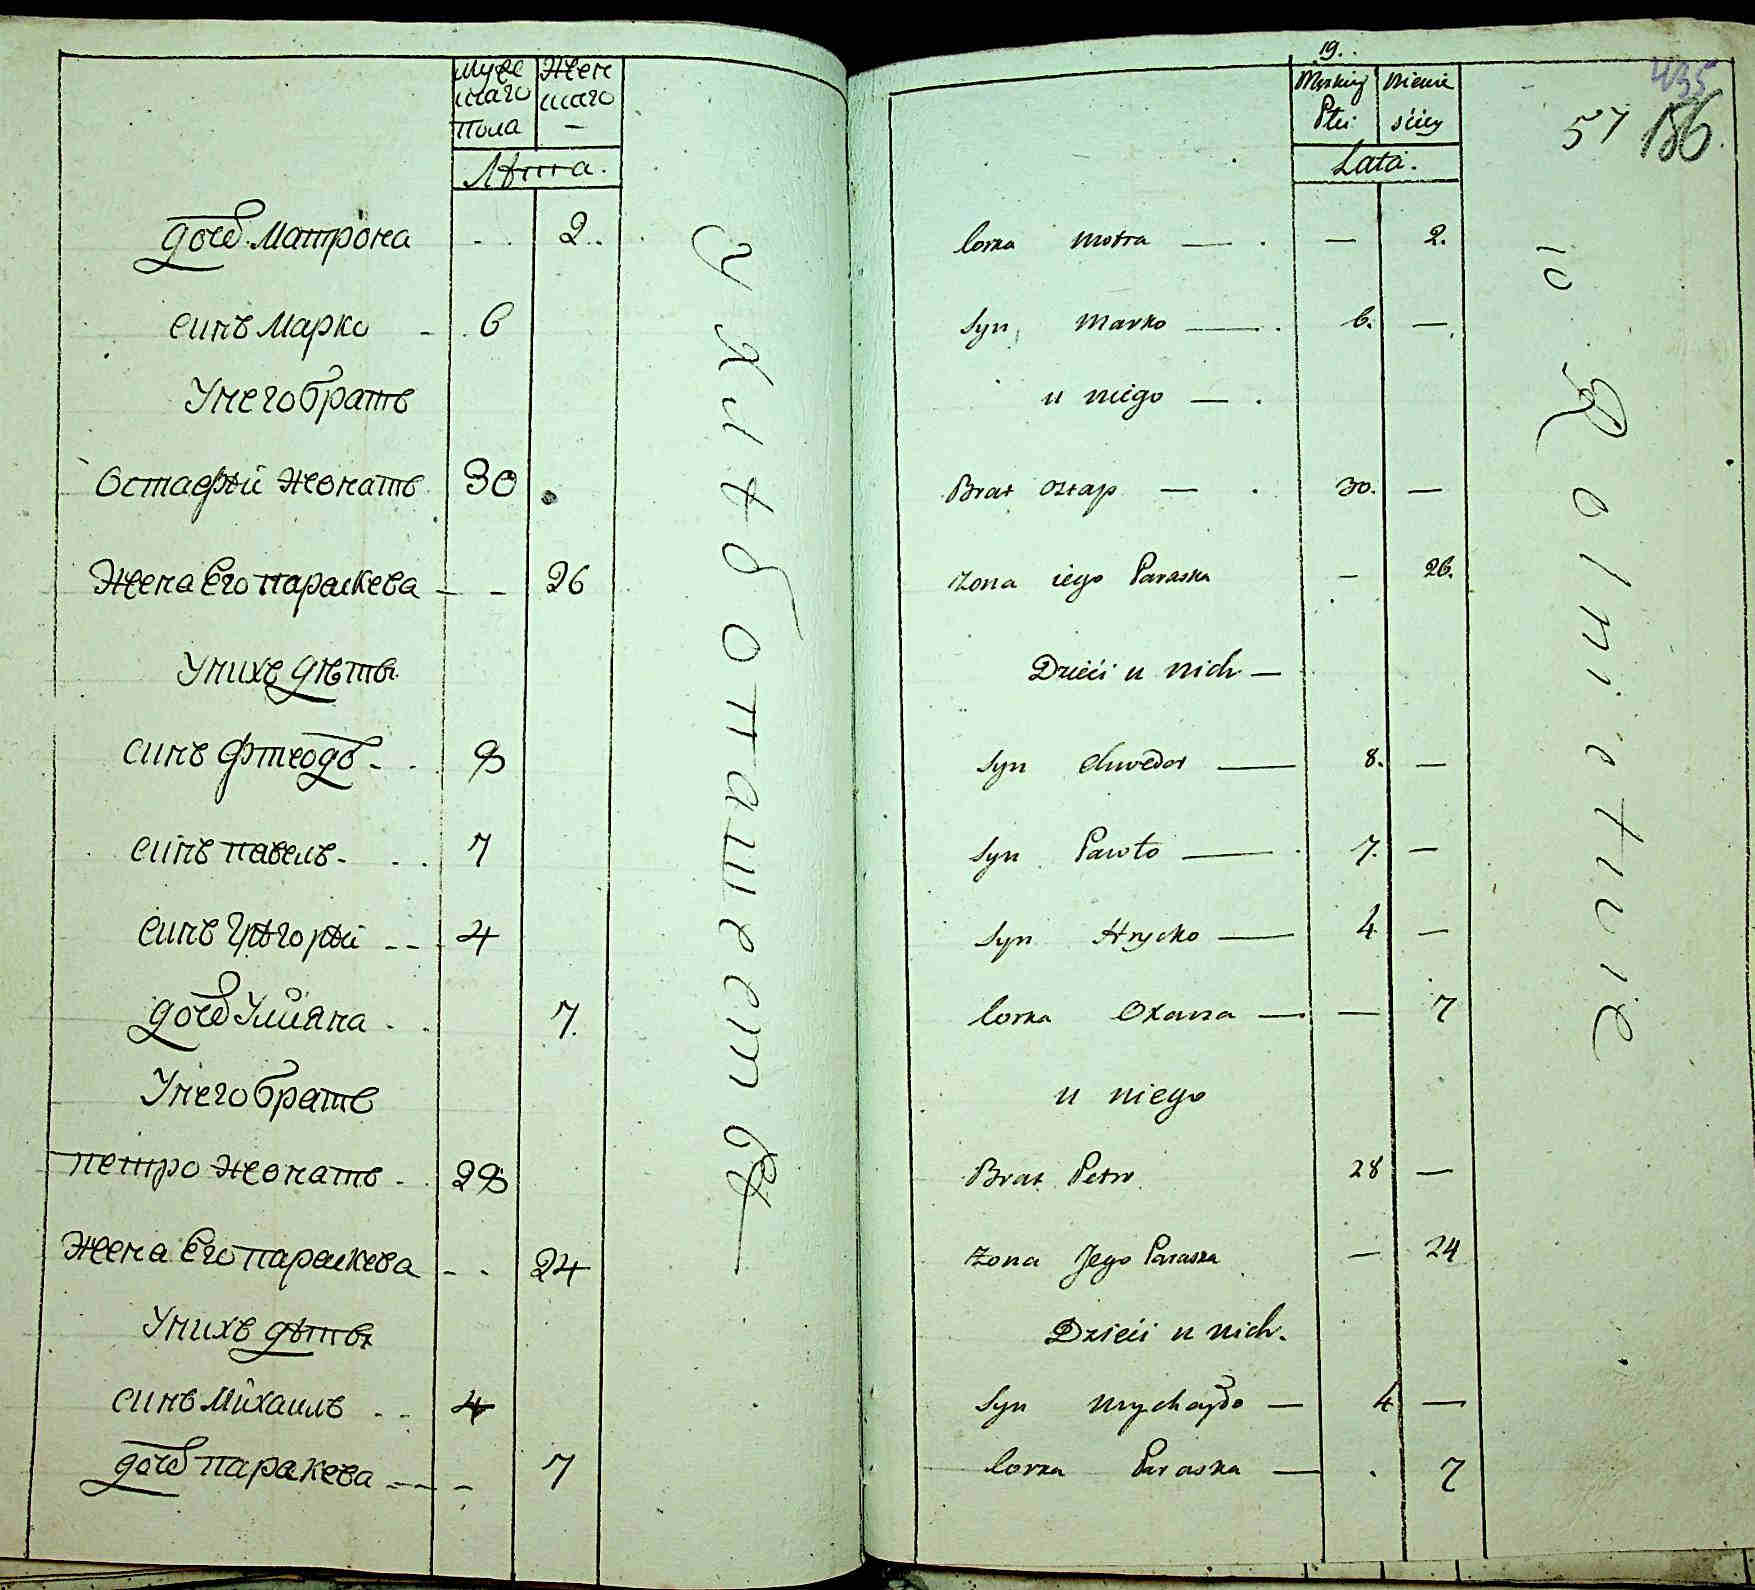 Муже Жен
скаго скаго
Пола —
Лѣта.
дочь Матрона - . 2.
синъ Марко - 6
Унего братъ
Остафѣй жонатъ 30
Жена Его параскева - - 26
Унихъ дѣты
синъ Фтеодо - . 8
синъ павелъ - . . 7
синъ Григорѣй - - 4
дочь Улияна - . 7.
Унего братъ
петро жонатъ - . 28
Жена Его параскева - . 24
Унихъ дѣты
синъ Михаилъ . . 4
дочь паракева - - - 7
у хлѣбопашествѣ
19.
Męskiey Niewie
Płci ściey
Lata.
435
57 186.
Corka Motra — . — 2.
Syn Marko — . 6. —
u niego — .
Brat Ostap — . 30. —
Zona iego Paraska — 26.
Dzieci u nich —
Syn Chwedor — 8. —
Syn Pawło — 7. —
Syn Hrycko — 4 —
Corka Oxana — — 7
u niego
Brat Petro 28 —
Zona Jego Paraska — 24
Dzieci u nich.
Syn Mychayło — 4 —
Corka Paraska — . 7
w Rolnictwie